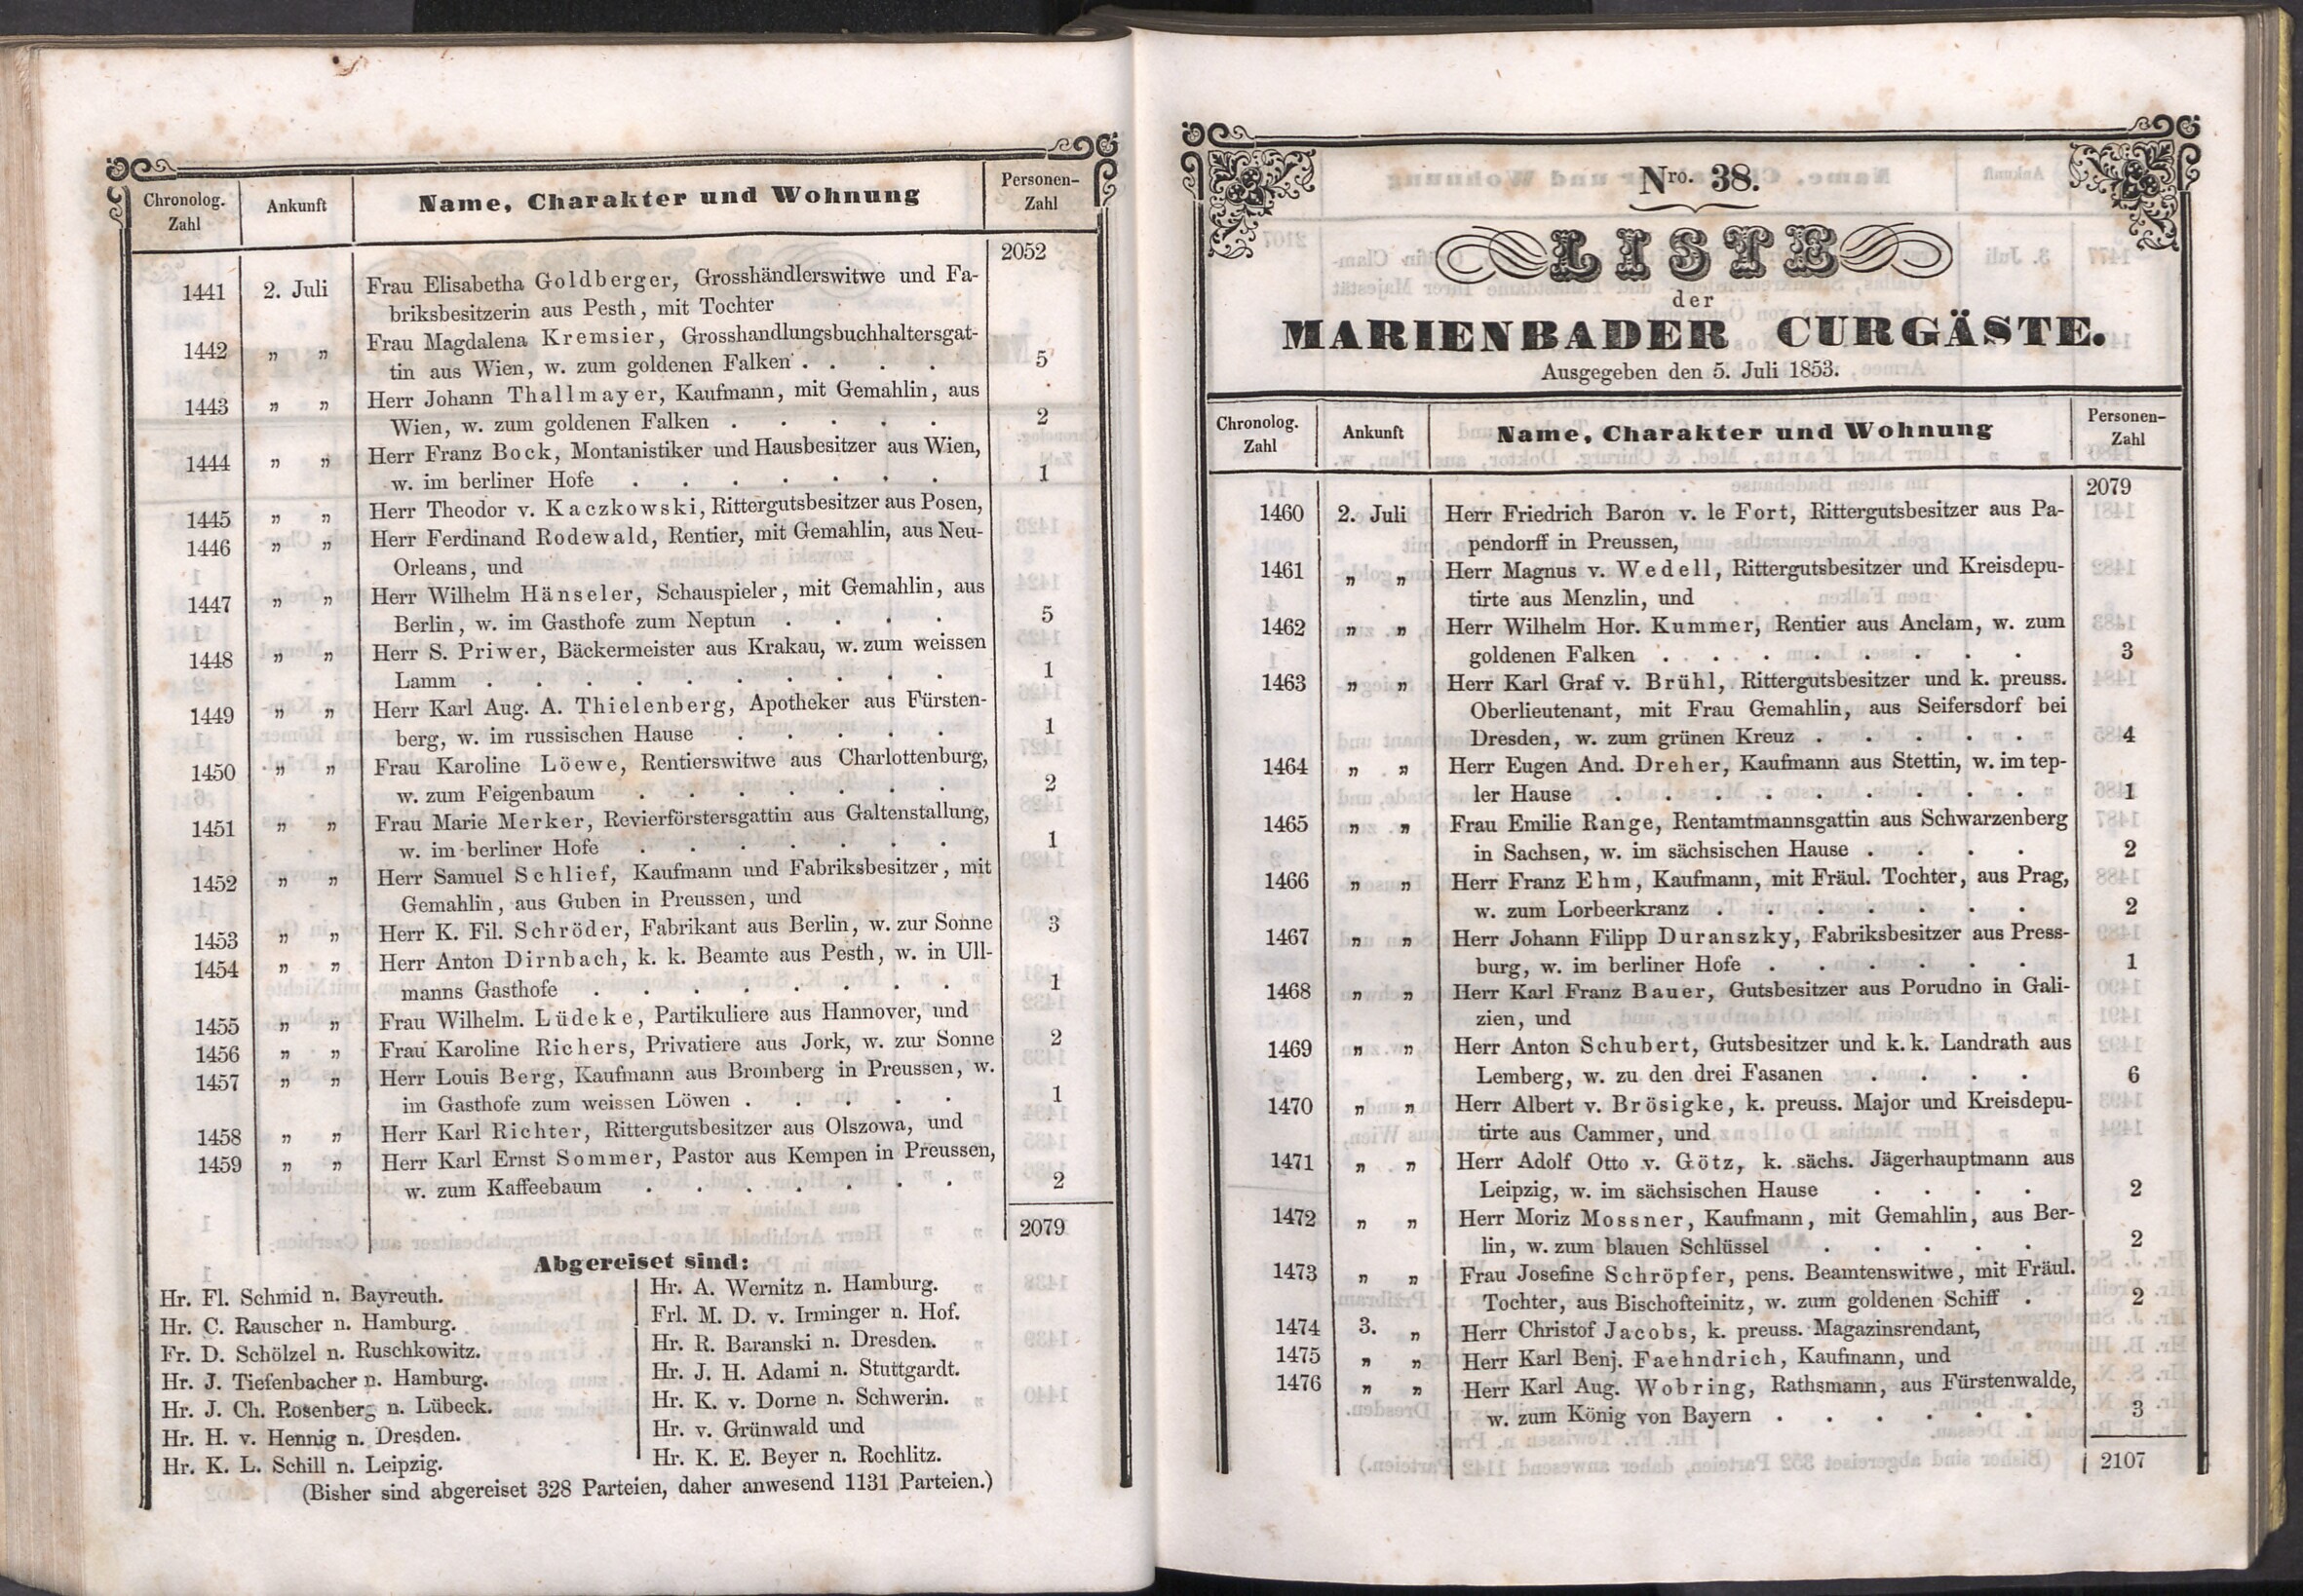 Chronolog. Zahl | Ankunft | Name, Charakter und Wohnung | Personen-Zahl
2052
1441 2. Juli Frau Elisabetha Goldberger, Grosshändlerswitwe und Fa-
briksbesitzerin aus Pesth, mit Tochter
1442 „ „ Frau Magdalena Kremsier, Grosshandlungsbuchhaltersgat-
tin aus Wien, w. zum goldenen Falken . . . . 5
1443 „ „ Herr Johann Thallmayer, Kaufmann, mit Gemahlin, aus
Wien, w. zum goldenen Falken . . . . . 2
1444 „ „ Herr Franz Bock, Montanistiker und Hausbesitzer aus Wien,
w. im berliner Hofe . . . . . . . 1
1445 „ „ Herr Theodor v. Kaczkowski, Rittergutsbesitzer aus Posen,
1446 „ „ Herr Ferdinand Rodewald, Rentier, mit Gemahlin, aus Neu-
Orleans, und
1447 „ „ Herr Wilhelm Hänseler, Schauspieler, mit Gemahlin, aus
Berlin, w. im Gasthofe zum Neptun . . . . 5
1448 „ „ Herr S. Priwer, Bäckermeister aus Krakau, w. zum weissen
Lamm . . . . . . . . . . 1
1449 „ „ Herr Karl Aug. A. Thielenberg, Apotheker aus Fürsten-
berg, w. im russischen Hause . . . . . 1
1450 „ „ Frau Karoline Löewe, Rentierswitwe aus Charlottenburg,
w. zum Feigenbaum . . . . . . . 2
1451 „ „ Frau Marie Merker, Revierförstersgattin aus Galtenstallung,
w. im berliner Hofe . . . . . . . 1
1452 „ „ Herr Samuel Schlief, Kaufmann und Fabriksbesitzer, mit
Gemahlin, aus Guben in Preussen, und
1453 „ „ Herr K. Fil. Schröder, Fabrikant aus Berlin, w. zur Sonne 3
1454 „ „ Herr Anton Dirnbach, k. k. Beamte aus Pesth, w. in Ull-
manns Gasthofe . . . . . . . . 1
1455 „ „ Frau Wilhelm. Lüdcke, Partikuliere aus Hannover, und
1456 „ „ Frau Karoline Richers, Privatiere aus Jork, w. zur Sonne 2
1457 „ „ Herr Louis Berg, Kaufmann aus Bromberg in Preussen, w.
im Gasthofe zum weissen Löwen . . . . . 1
1458 „ „ Herr Karl Richter, Rittergutsbesitzer aus Olszowa, und
1459 „ „ Herr Karl Ernst Sommer, Pastor aus Kempen in Preussen,
w. zum Kaffeebaum . . . . . . . 2
2079
Abgereiset sind:
Hr. Fl. Schmid n. Bayreuth.
Hr. C. Rauscher n. Hamburg.
Fr. D. Schölzel n. Ruschkowitz.
Hr. J. Tiefenbacher n. Hamburg.
Hr. J. Ch. Rosenberg n. Lübeck.
Hr. H. v. Hennig n. Dresden.
Hr. K. L. Schill n. Leipzig.
Hr. A. Wernitz n. Hamburg.
Frl. M. D. v. Irminger n. Hof.
Hr. R. Baranski n. Dresden.
Hr. J. H. Adami n. Stuttgardt.
Hr. K. v. Dorne n. Schwerin.
Hr. v. Grünwald und
Hr. K. E. Beyer n. Rochlitz.
(Bisher sind abgereiset 328 Parteien, daher anwesend 1131 Parteien.)
Nro. 38.
LISTE
der
MARIENBADER CURGÄSTE.
Ausgegeben den 5. Juli 1853.
Chronolog. Zahl | Ankunft | Name, Charakter und Wohnung | Personen-Zahl
2079
1460 2. Juli Herr Friedrich Baron v. le Fort, Rittergutsbesitzer aus Pa-
pendorff in Preussen,
1461 „ „ Herr Magnus v. Wedell, Rittergutsbesitzer und Kreisdepu-
tirte aus Menzlin, und
1462 „ „ Herr Wilhelm Hor. Kummer, Rentier aus Anclam, w. zum
goldenen Falken . . . . . . . . 3
1463 „ „ Herr Karl Graf v. Brühl, Rittergutsbesitzer und k. preuss.
Oberlieutenant, mit Frau Gemahlin, aus Seifersdorf bei
Dresden, w. zum grünen Kreuz . . . . . 4
1464 „ „ Herr Eugen And. Dreher, Kaufmann aus Stettin, w. im tep-
ler Hause . . . . . . . . . 1
1465 „ „ Frau Emilie Range, Rentamtmannsgattin aus Schwarzenberg
in Sachsen, w. im sächsischen Hause . . . . 2
1466 „ „ Herr Franz Ehm, Kaufmann, mit Fräul. Tochter, aus Prag,
w. zum Lorbeerkranz . . . . . . . 2
1467 „ „ Herr Johann Filipp Duranszky, Fabriksbesitzer aus Press-
burg, w. im berliner Hofe . . . . . . 1
1468 „ „ Herr Karl Franz Bauer, Gutsbesitzer aus Porudno in Gali-
zien, und
1469 „ „ Herr Anton Schubert, Gutsbesitzer und k. k. Landrath aus
Lemberg, w. zu den drei Fasanen . . . . 6
1470 „ „ Herr Albert v. Brösigke, k. preuss. Major und Kreisdepu-
tirte aus Cammer, und
1471 „ „ Herr Adolf Otto v. Götz, k. sächs. Jägerhauptmann aus
Leipzig, w. im sächsischen Hause . . . . 2
1472 „ „ Herr Moriz Mossner, Kaufmann, mit Gemahlin, aus Ber-
lin, w. zum blauen Schlüssel . . . . . 2
1473 „ „ Frau Josefine Schröpfer, pens. Beamtenswitwe, mit Fräul.
Tochter, aus Bischofteinitz, w. zum goldenen Schiff . 2
1474 3. „ Herr Christof Jacobs, k. preuss. Magazinsrendant,
1475 „ „ Herr Karl Benj. Faehndrich, Kaufmann, und
1476 „ „ Herr Karl Aug. Wobring, Rathsmann, aus Fürstenwalde,
w. zum König von Bayern . . . . . . 3
2107